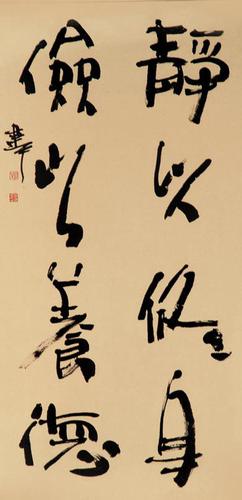 靜以修身
儉以養德